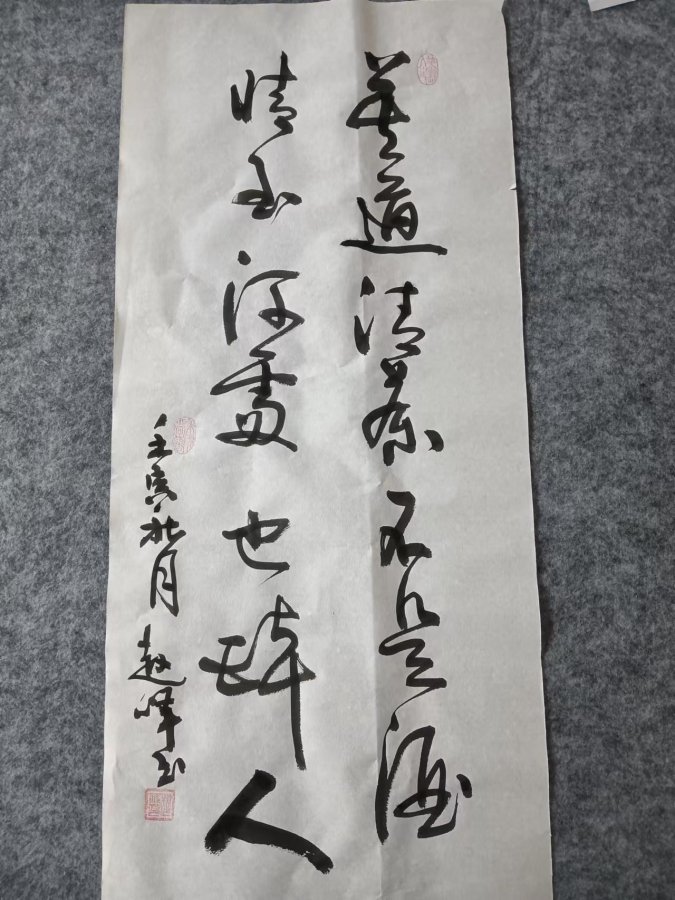 莫道清茶不是酒
情到深处也醉人
壬寅秋月 赵峰书